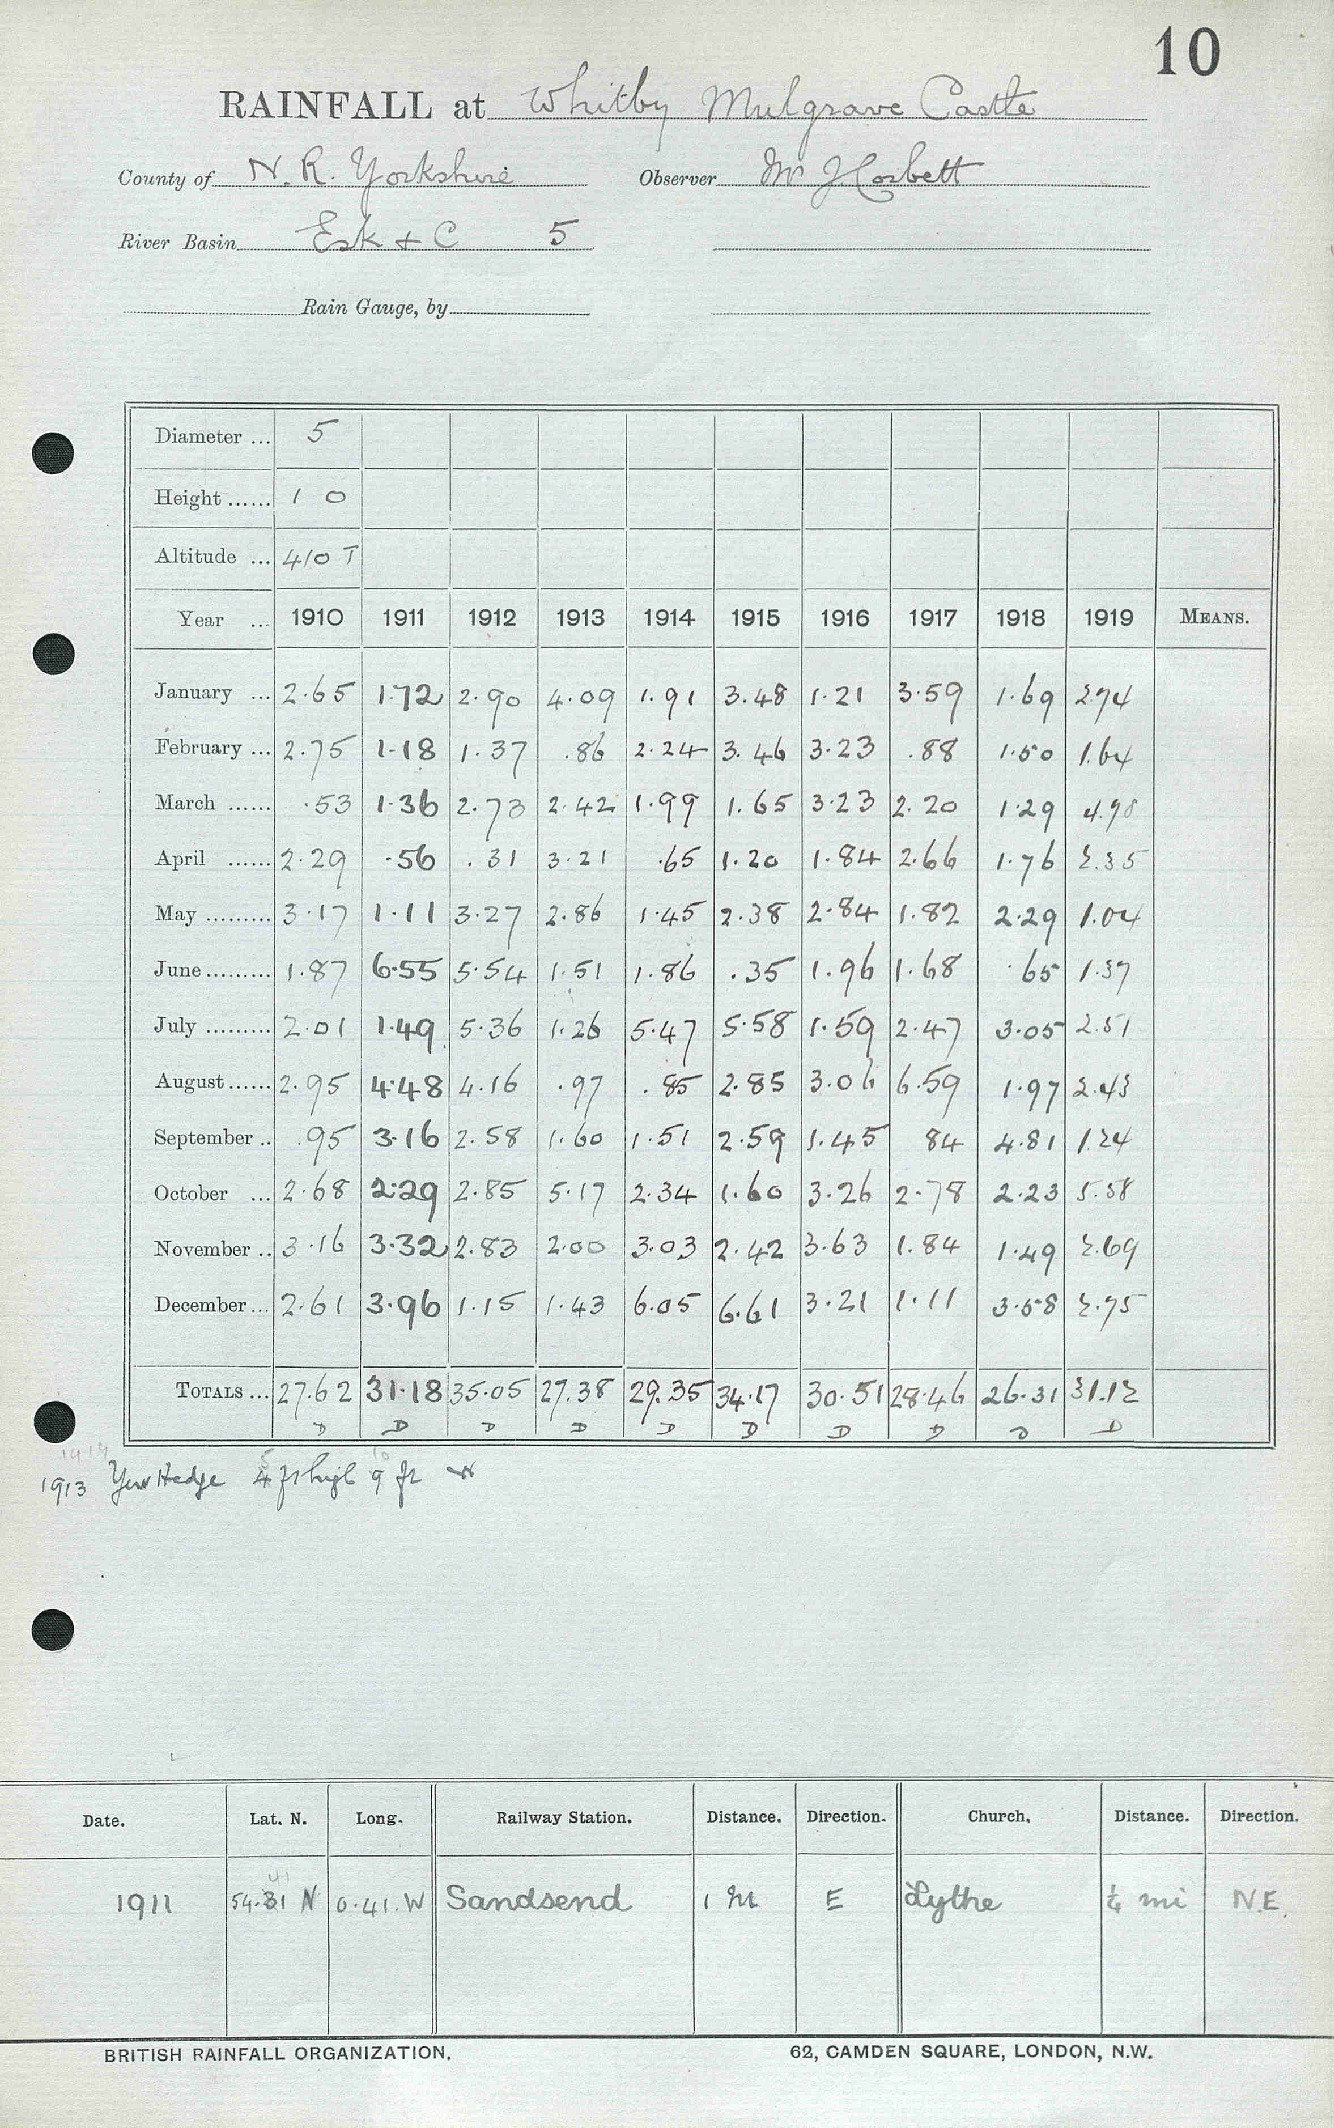 10
RAINFALL at Whitby Mulgrave Castle
County of N. R. Yorkshire Observer Mr J. Corbett
River Basin Esk & C 5
Rain Gauge, by
Diameter ... 5
Height ...... 1 0
Altitude ... 410 T
Year ... 1910 1911 1912 1913 1914 1915 1916 1917 1918 1919 MEANS.
January ... 2.65 1.72 2.90 4.09 1.91 3.48 1.21 3.59 1.69 2.74
February ... 2.75 1.18 1.37 .86 2.24 3.46 3.23 .88 1.50 1.64
March ...... .53 1.36 2.73 2.42 1.99 1.65 3.23 2.20 1.29 4.98
April ...... 2.29 .56 .31 3.21 .65 1.20 1.84 2.66 1.76 2.35
May ......... 3.17 1.11 3.27 2.86 1.45 2.38 2.84 1.82 2.29 1.04
June ......... 1.87 6.55 5.54 1.51 1.86 .35 1.96 1.68 .65 1.37
July ......... 2.01 1.49 5.36 1.26 5.47 5.58 1.59 2.47 3.05 2.51
August ...... 2.95 4.48 4.16 .97 .85 2.85 3.06 6.59 1.97 2.43
September .. .95 3.16 2.58 1.60 1.51 2.59 1.45 84 4.81 1.24
October ... 2.68 2.29 2.85 5.17 2.34 1.60 3.26 2.78 2.23 5.38
November .. 3.16 3.32 2.83 2.00 3.03 2.42 3.63 1.84 1.49 2.69
December ... 2.61 3.96 1.15 1.43 6.05 6.61 3.21 1.11 3.58 2.75
TOTALS ... 27.62 31.18 35.05 27.38 29.35 34.17 30.51 28.46 26.31 31.12
D D D D D D D D D D
1913 Yew Hedge 4 ft high 9 ft W
Date. Lat. N. Long. Railway Station. Distance. Direction. Church. Distance. Direction.
41
1911 54.31 N 0.41.W Sandsend 1 M E Lythe ¼ mi N.E.
BRITISH RAINFALL ORGANIZATION. 62, CAMDEN SQUARE, LONDON, N.W.